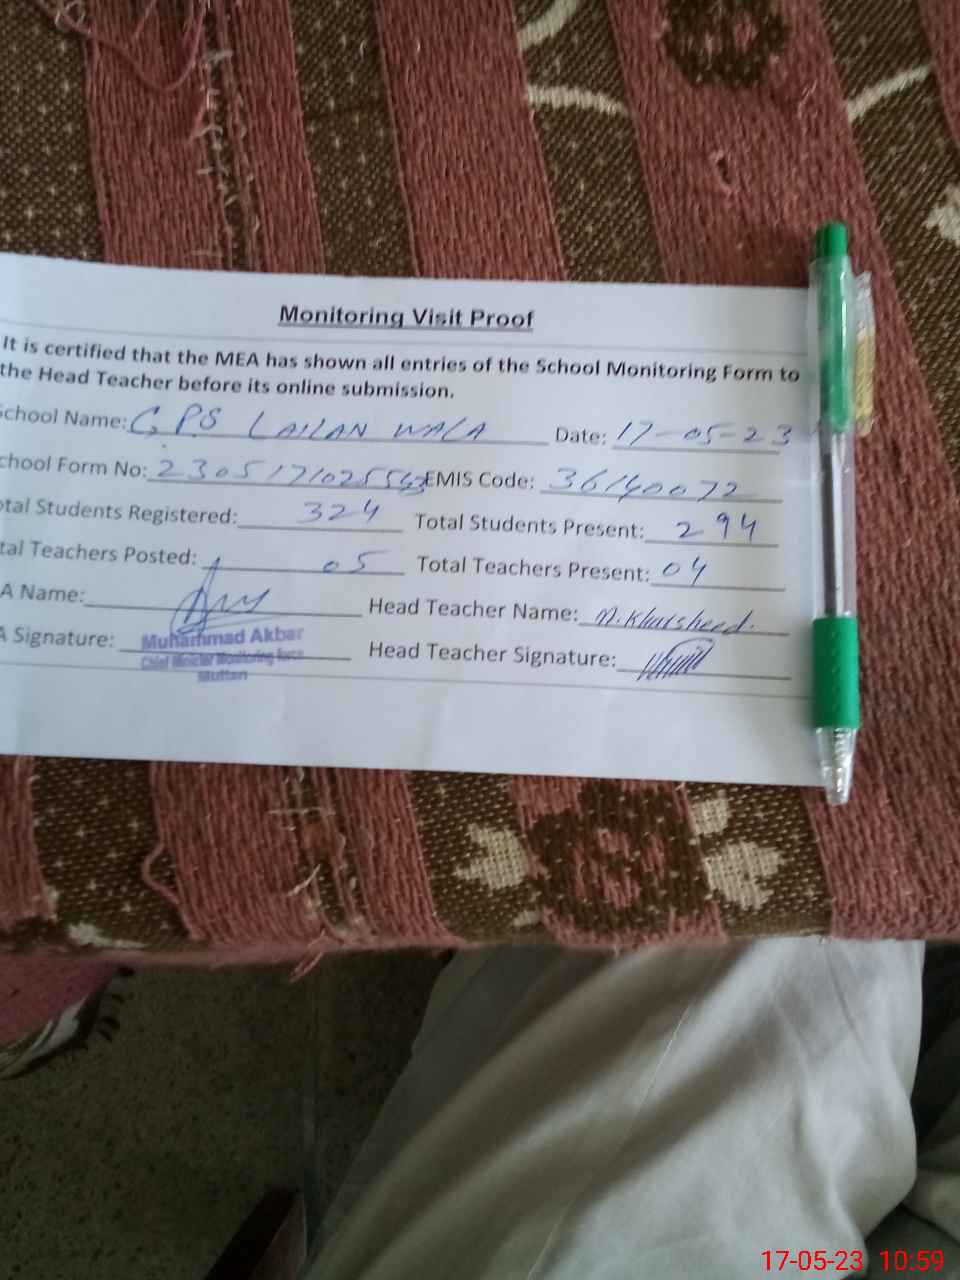 Monitoring Visit Proof
It is certified that the MEA has shown all entries of the School Monitoring Form to
the Head Teacher before its online submission.
School Name: GPS LAILAN WALA Date: 17-05-23
chool Form No: 2305171025543 EMIS Code: 36140072
otal Students Registered: 324 Total Students Present: 294
tal Teachers Posted: 05 Total Teachers Present: 04
A Name: Head Teacher Name: M. Khursheed.
A Signature: Muhammad Akbar Head Teacher Signature:
Chief Minister Monitoring force
Multan
17-05-23 10:59